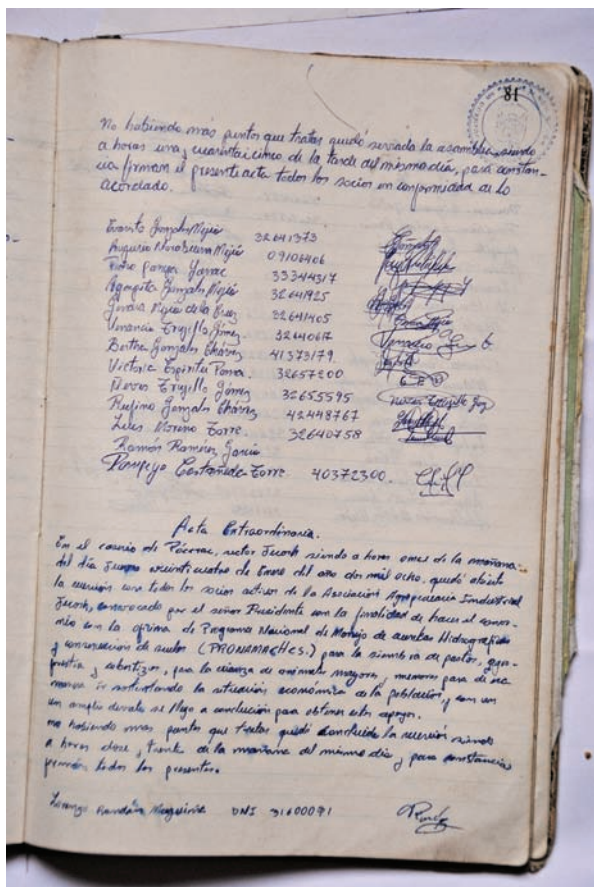 81
No habiendo más puntos que tratar quedó serrada la asamblea siendo
a horas una y cuarentaicinco de la tarde del mismo día, para constan-
cia firman el presente acta todos los socios en conformidad de lo
acordado.
Evaristo Gonzales Mejía 32641373
Augurio Mejía 09106406
33344317
Agapito Gonzales Mejía 32641925
Mejía de la Cruz 32641405
Venancio Trujillo Gómez 32640617
Bertha Gonzales Chávez 41373179
Victoria Espíritu Poma. 32657200
Nieves Trujillo Gómez 32655595
Rufino Gonzales Chávez 42448767
Luis Moreno Torre. 32640758
Ramón Ramírez García
Pompeyo Castañeda Torre. 40372300.
Acta Extraordinaria.
En el caserío de sector siendo a horas once de la mañana
del día Jueves veinticuatro de Enero del año dos mil ocho, quedó abierto
la reunión con todos los socios activos de la Asociación Agropecuaria Industrial
convocado por el señor Presidente con la finalidad de hacer el conve-
nio con la oficina de Programa Nacional de Manejo de cuencas Hidrográficas
y conservación de suelos (PRONAMACHCS.) para la siembra de pastos,
y cobertizos, para la crianza de animales mayores y menores para de esa
manera ir la situación económica de la población, y con un
un amplio devate se llego a conclución para obtener estos apoyos.
no habiendo mas puntos que tratar quedó concluida la reunión siendo
a horas doce y treinta de la mañana del mismo día y para constancia
firman todos los presentes.
DNI 31600091